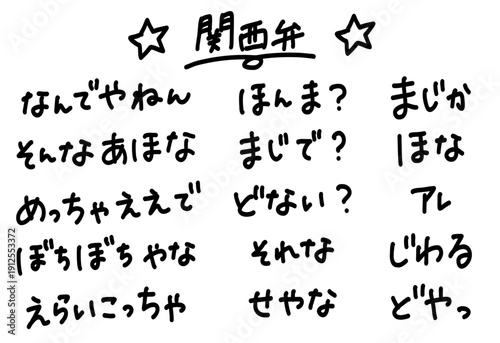 ☆ 関西弁 ☆
なんでやねん ほんま? まじか
そんなあほな まじで? ほな
めっちゃええで どない? アレ
ぼちぼちやな それな じわる
えらいこっちゃ せやな どやっ
Adobe Stock | #1912553372